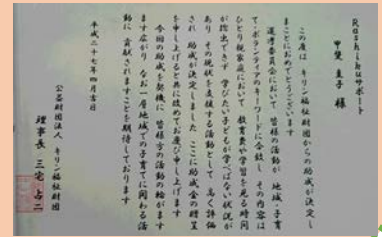 Rashikuサポート
甲斐 圭子 様
この度は キリン福祉財団からの助成が決定し
まことにおめでとうございます
選考委員会において 皆様の活動が 地域・子育
て・ボランティアのキーワードに合致し その内容は
ひとり親家庭において 教育費や学習を見る時間
が捻出できず 学びたい子どもが学べない状況が
あり その現状を支援する活動として 高く評価
され 助成が決定しました ここに助成金の贈呈
を申し上げると共に改めてお慶び申し上げます
今回の助成を契機に 皆様方の活動の輪がます
ます広がり なお一層地域での子育てに関わる活
動に貢献されますことを期待しております
平成二十七年四月吉日
公益財団法人 キリン福祉財団
理事長 三宅 占二